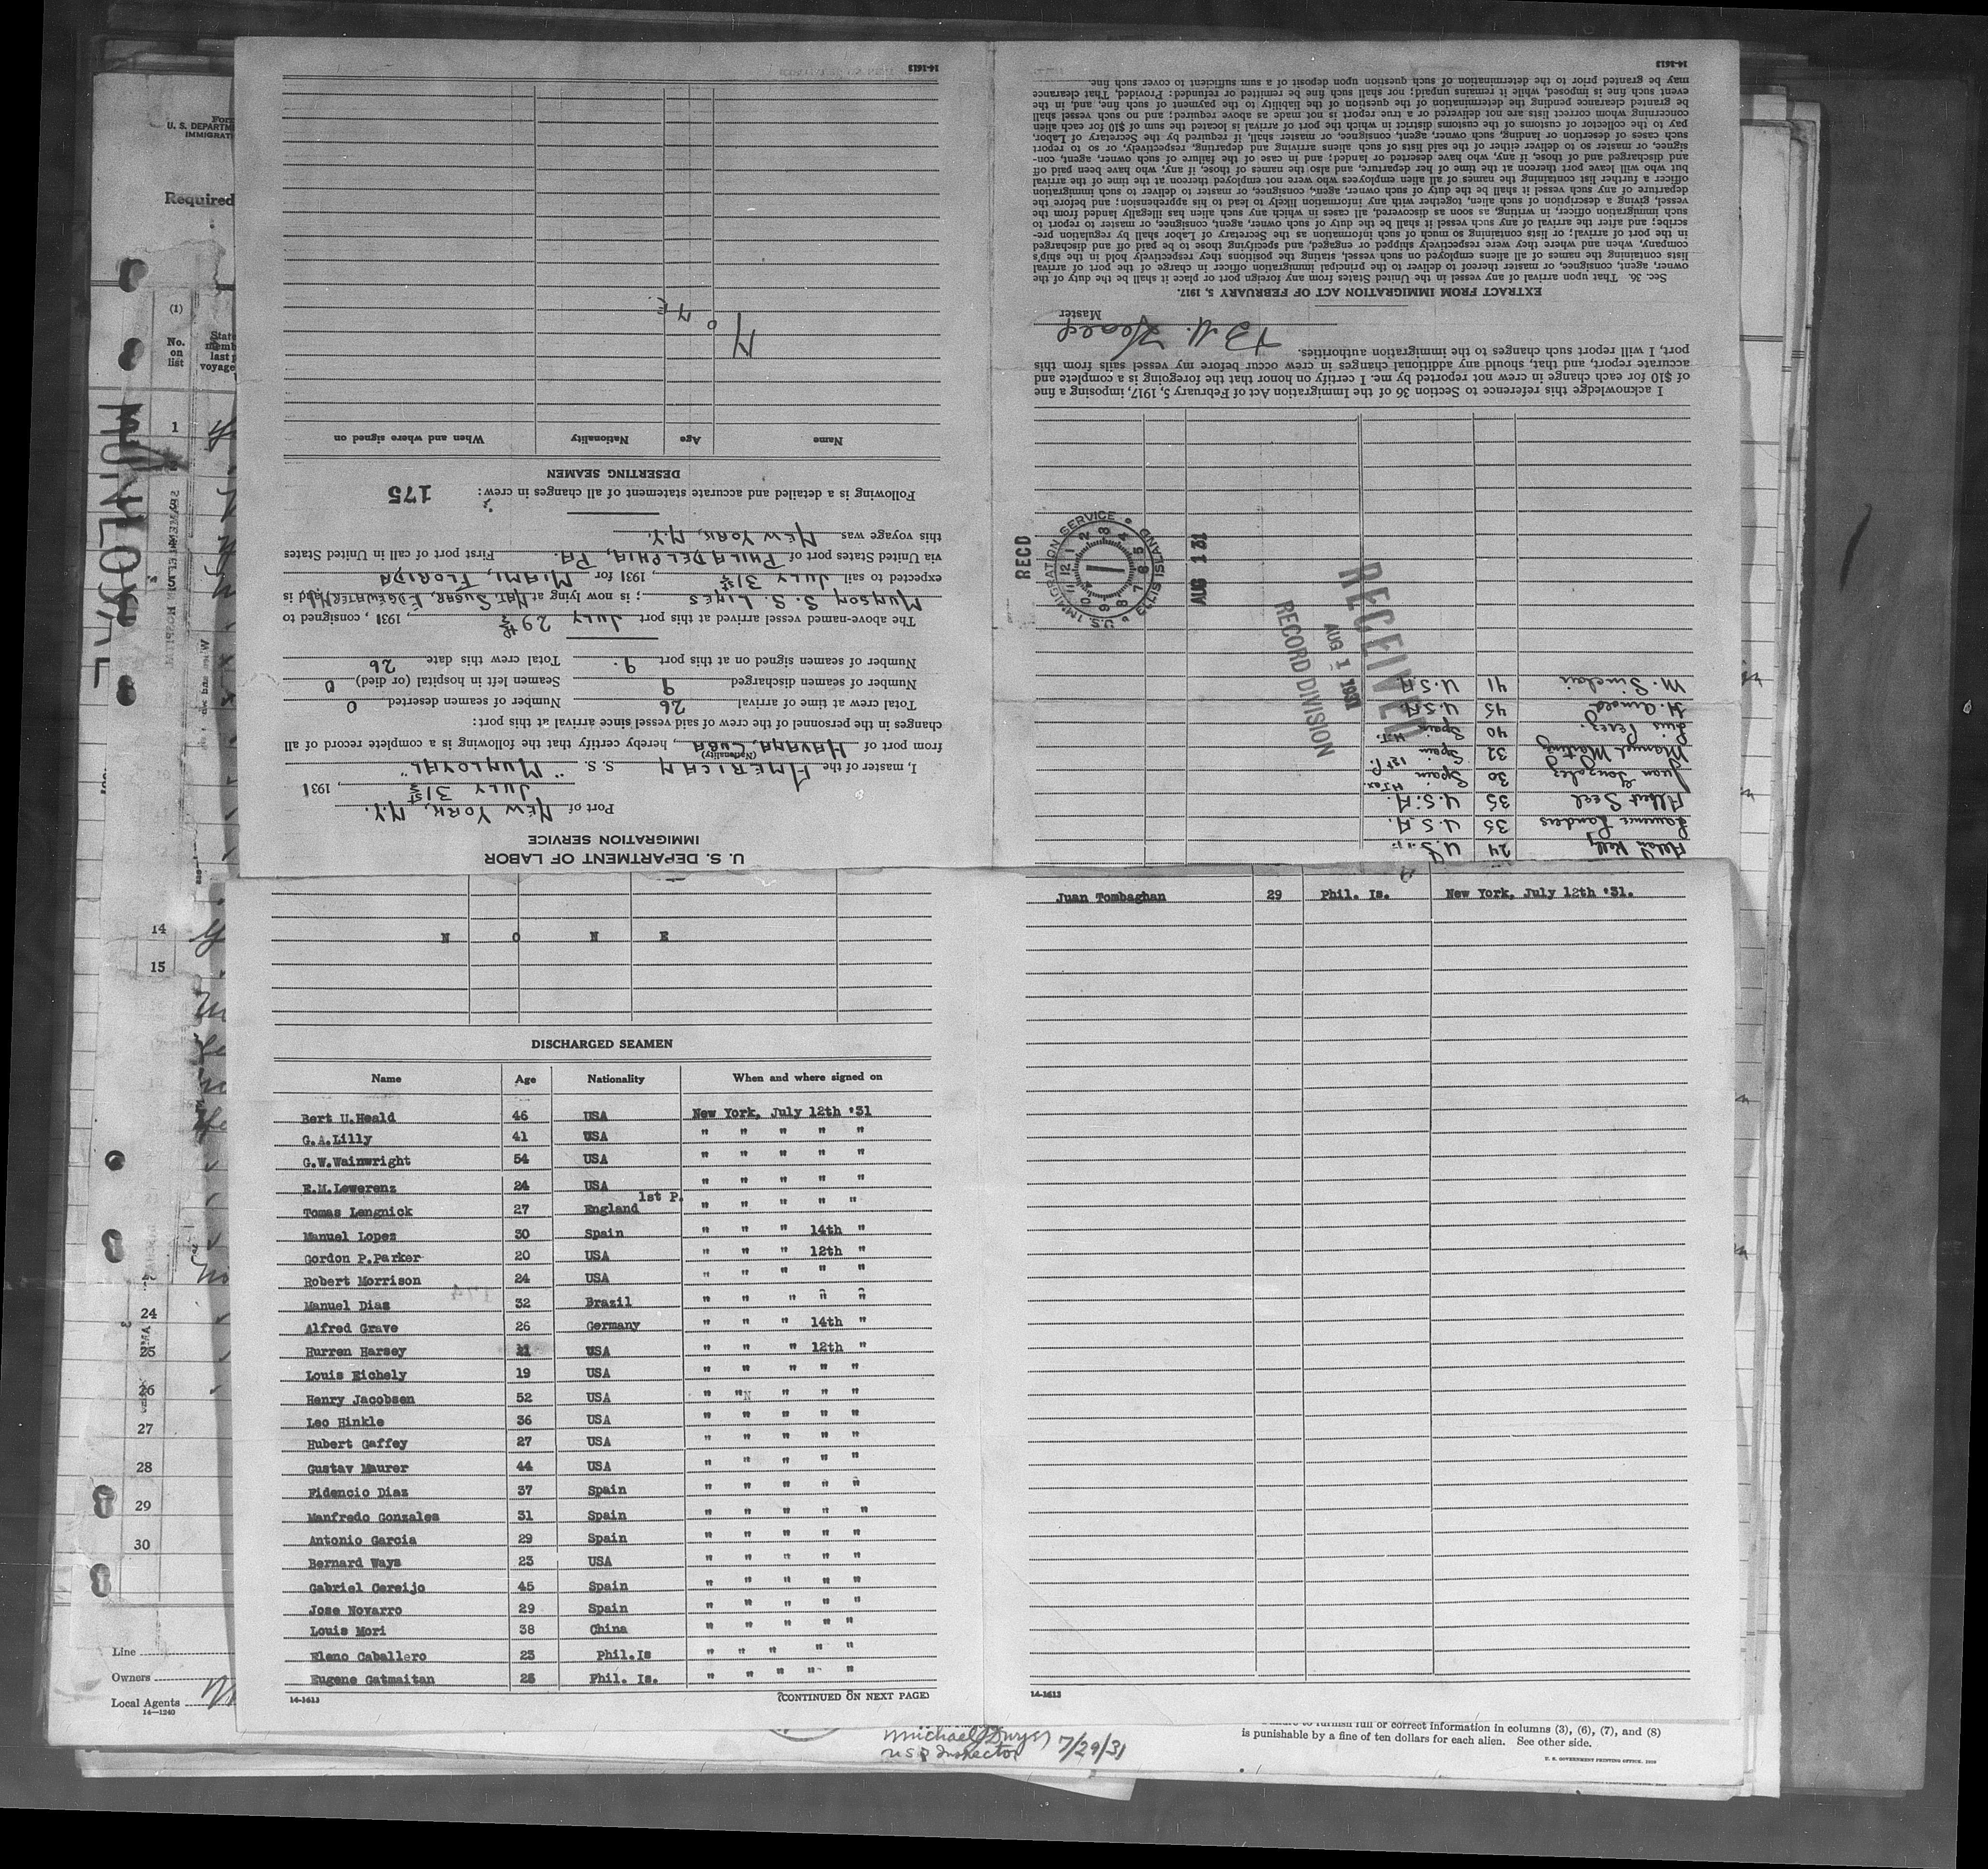 Form
U. S. DEPARTM
IMMIGRAT
Required
(1)
No.
on
list
State
memb
last p
voyage
1
MUNLOYAL
14
15
24
25
26
27
28
29
30
Line
Owners
Local Agents
14—1240
U. S. DEPARTMENT OF LABOR
IMMIGRATION SERVICE
Port of NEW YORK, N.Y.
JULY 31st, 1931
I, master of the AMERICAN S. S. "MUNLOYAL"
(Nationality)
from port of HAVANA, CUBA, hereby certify that the following is a complete record of all
changes in the personnel of the crew of said vessel since arrival at this port:
Total crew at time of arrival 26 Number of seamen deserted 0
Number of seamen discharged 9 Seamen left in hospital (or died) 0
Number of seamen signed on at this port 9. Total crew this date 26
The above-named vessel arrived at this port JULY 29th, 1931, consigned to
MUNSON S. S. LINES; is now lying at NAT. SUGAR, EDGEWATER, and is
expected to sail JULY 31st, 1931 for MIAMI, FLORIDA
via United States port of PHILADELPHIA, PA. First port of call in United States
this voyage was NEW YORK, N.Y.
Following is a detailed and accurate statement of all changes in crew: 175
DESERTING SEAMEN
Name Age Nationality When and where signed on
N O N E
14-1613
Allan Kelly 24 U.S.A.
Lawrence Landers 35 U.S.A.
Albert Seel 35 U.S.A.
Juan Gonzalez 30 Spain
Manuel Martinez 32 Spain 1st P.
Luis Perez. 40 Spain
H. Arnold 45 U.S.A.
M. Sinclair 41 U.S.A.
RECEIVED
AUG 1 1931
RECORD DIVISION
RECD
U.S. IMMIGRATION SERVICE • ELLIS ISLAND
AUG 1 31
I acknowledge this reference to Section 36 of the Immigration Act of February 5, 1917, imposing a fine
of $10 for each change in crew not reported by me. I certify on honor that the foregoing is a complete and
accurate report, and that, should any additional changes in crew occur before my vessel sails from this
port, I will report such changes to the immigration authorities.
B. U. Heald
Master
EXTRACT FROM IMMIGRATION ACT OF FEBRUARY 5, 1917.
Sec. 36. That upon arrival of any vessel in the United States from any foreign port or place it shall be the duty of the
owner, agent, consignee, or master thereof to deliver to the principal immigration officer in charge of the port of arrival
lists containing the names of all aliens employed on such vessel, stating the positions they respectively hold in the ship's
company, when and where they were respectively shipped or engaged, and specifying those to be paid off and discharged
in the port of arrival; or lists containing so much of such information as the Secretary of Labor shall by regulation pre-
scribe; and after the arrival of any such vessel it shall be the duty of such owner, agent, consignee, or master to report to
such immigration officer, in writing, as soon as discovered, all cases in which any such alien has illegally landed from the
vessel, giving a description of such alien, together with any information likely to lead to his apprehension; and before the
departure of any such vessel it shall be the duty of such owner, agent, consignee, or master to deliver to such immigration
officer a further list containing the names of all alien employees who were not employed thereon at the time of the arrival
but who will leave port thereon at the time of her departure, and also the names of those, if any, who have been paid off
and discharged and of those, if any, who have deserted or landed; and in case of the failure of such owner, agent, con-
signee, or master so to deliver either of the said lists of such aliens arriving and departing, respectively, or so to report
such cases of desertion or landing, such owner, agent, consignee, or master shall, if required by the Secretary of Labor,
pay to the collector of customs of the customs district in which the port of arrival is located the sum of $10 for each alien
concerning whom correct lists are not delivered or a true report is not made as above required; and no such vessel shall
be granted clearance pending the determination of the question of the liability to the payment of such fine, and, in the
event such fine is imposed, while it remains unpaid; nor shall such fine be remitted or refunded: Provided, That clearance
may be granted prior to the determination of such question upon deposit of a sum sufficient to cover such fine.
14-1613
N O N E
DISCHARGED SEAMEN
Name Age Nationality When and where signed on
Bert U.Heald 46 USA New York, July 12th '31
G.A.Lilly 41 USA " " " " "
G.W.Wainwright 54 USA " " " " "
E.M.Lewerenz 24 USA " " " " "
Tomas Lengnick 27 England 1st P. " " " " "
Manuel Lopez 30 Spain " " " 14th "
Gordon P.Parker 20 USA " " " 12th "
Robert Morrison 24 USA " " " " "
Manuel Dias 32 Brazil " " " " "
Alfred Grave 26 Germany " " " 14th "
Hurren Harsey 21 USA " " " 12th "
Louis Eichely 19 USA " " " " "
Henry Jacobsen 52 USA " " " " "
Leo Hinkle 36 USA " " " " "
Hubert Gaffey 27 USA " " " " "
Gustav Maurer 44 USA " " " " "
Fidencio Diaz 37 Spain " " " " "
Manfredo Gonzales 31 Spain " " " " "
Antonio Garcia 29 Spain " " " " "
Bernard Ways 23 USA " " " " "
Gabriel Cereijo 45 Spain " " " " "
Jose Novarro 29 Spain " " " " "
Louis Mori 38 China " " " " "
Eleno Caballero 23 Phil.Is " " " " "
Eugene Gatmaitan 28 Phil. Is. " " " " "
14-1613
(CONTINUED ON NEXT PAGE)
Juan Tombaghan 29 Phil. Is. New York, July 12th '31.
14-1613
Michael Dwyer 7/29/31
USP Inspector
furnish full or correct information in columns (3), (6), (7), and (8)
is punishable by a fine of ten dollars for each alien. See other side.
U. S. GOVERNMENT PRINTING OFFICE